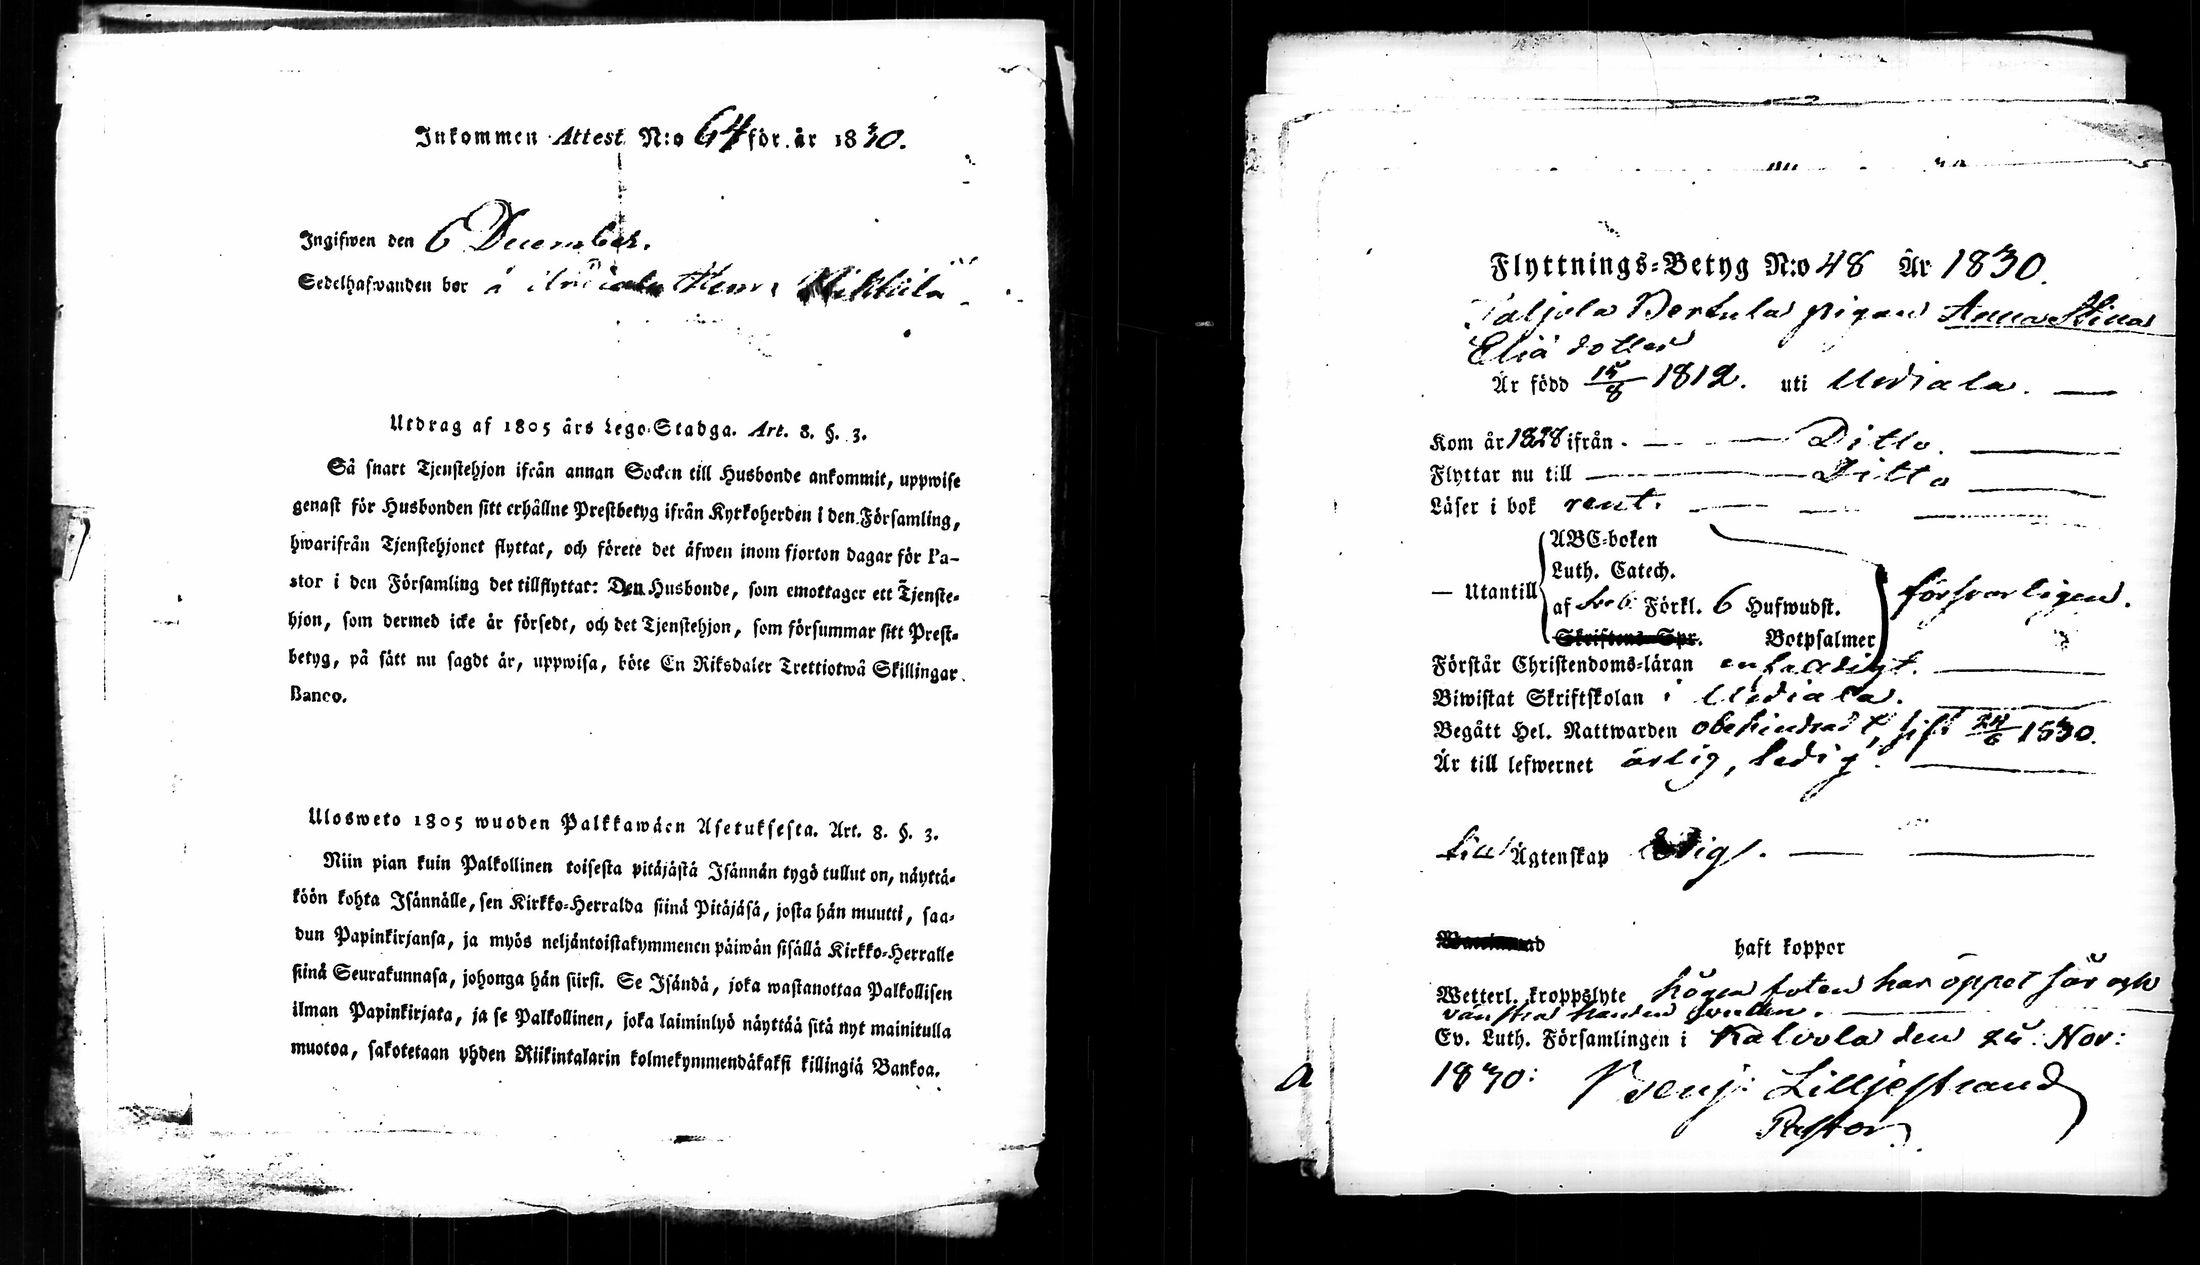 Inkommen Attest N:o 64 för år 1830.
Ingifwen den 6 December.
Sedelhafwanden bor å Mikkila
Utdrag af 1805 års Lego-Stadga. Art. 8. §. 3.
Så snart Tjenstehjon ifrån annan Socken till Husbonde ankommit, uppwise
genast för Husbonden sitt erhållne Prestbetyg ifrån Kyrkoherden i den Församling,
hwarifrån Tjenstehjonet flyttat, och förete det äfwen inom fjorton dagar för Pa-
stor i den Församling det tillflyttat: Den Husbonde, som emottager ett Tjenste-
hjon, som dermed icke är försedt, och det Tjenstehjon, som försummar sitt Prest-
betyg, på sätt nu sagdt är, uppwisa, böte En Riksdaler Trettiotwå Skillingar
Banco.
Ulosweto 1805 wuoden Palkkawäen Asetuksesta. Art. 8. §. 3.
Niin pian kuin Palkollinen toisesta pitäjästä Isännän tygö tullut on, näyttä-
köön kohta Isännälle, sen Kirkko-Herralda siinä Pitäjäsä, josta hän muutti, saa-
dun Papinkirjansa, ja myös neljäntoistakymmenen päiwän sisällä Kirkko-Herralle
siinä Seurakunnasa, johonga hän siirsi. Se Isändä, joka wastanottaa Palkollisen
ilman Papinkirjata, ja se Palkollinen, joka laiminlyö näyttää sitä nyt mainitulla
muotoa, sakotetaan yhden Riikintalarin kolmekymmendäkaksi killingiä Bankoa.
Flyttnings-Betyg N:o 48 År 1830.
Taljola Bertula pigan Anna Stina
Eliä dotter
Är född 15/8 1812. uti Urdiala.
Kom år 1828 ifrån Ditto.
Flyttar nu till Ditto
Läser i bok rent.
ABC-boken
Luth. Catech.
— Utantill af Sveb. Förkl. 6 Hufwudst. försvarligen.
Skriftens Spr. Botpsalmer
Förstår Christendoms-läran enfaldigt.
Biwistat Skriftskolan i Urdiala.
Begått Hel. Nattwarden obehindradt, sist 24/6 1830.
Är till lefwernet ärlig, ledig.
till Ägtenskap ledig.
haft koppor
Wetterl. kroppslyte högra foten har öppet sår och
vänstra handen
Ev. Luth. Församlingen i Kalvola den 24. Nov:
1830: Benj: Lilljestrand
Pastor.